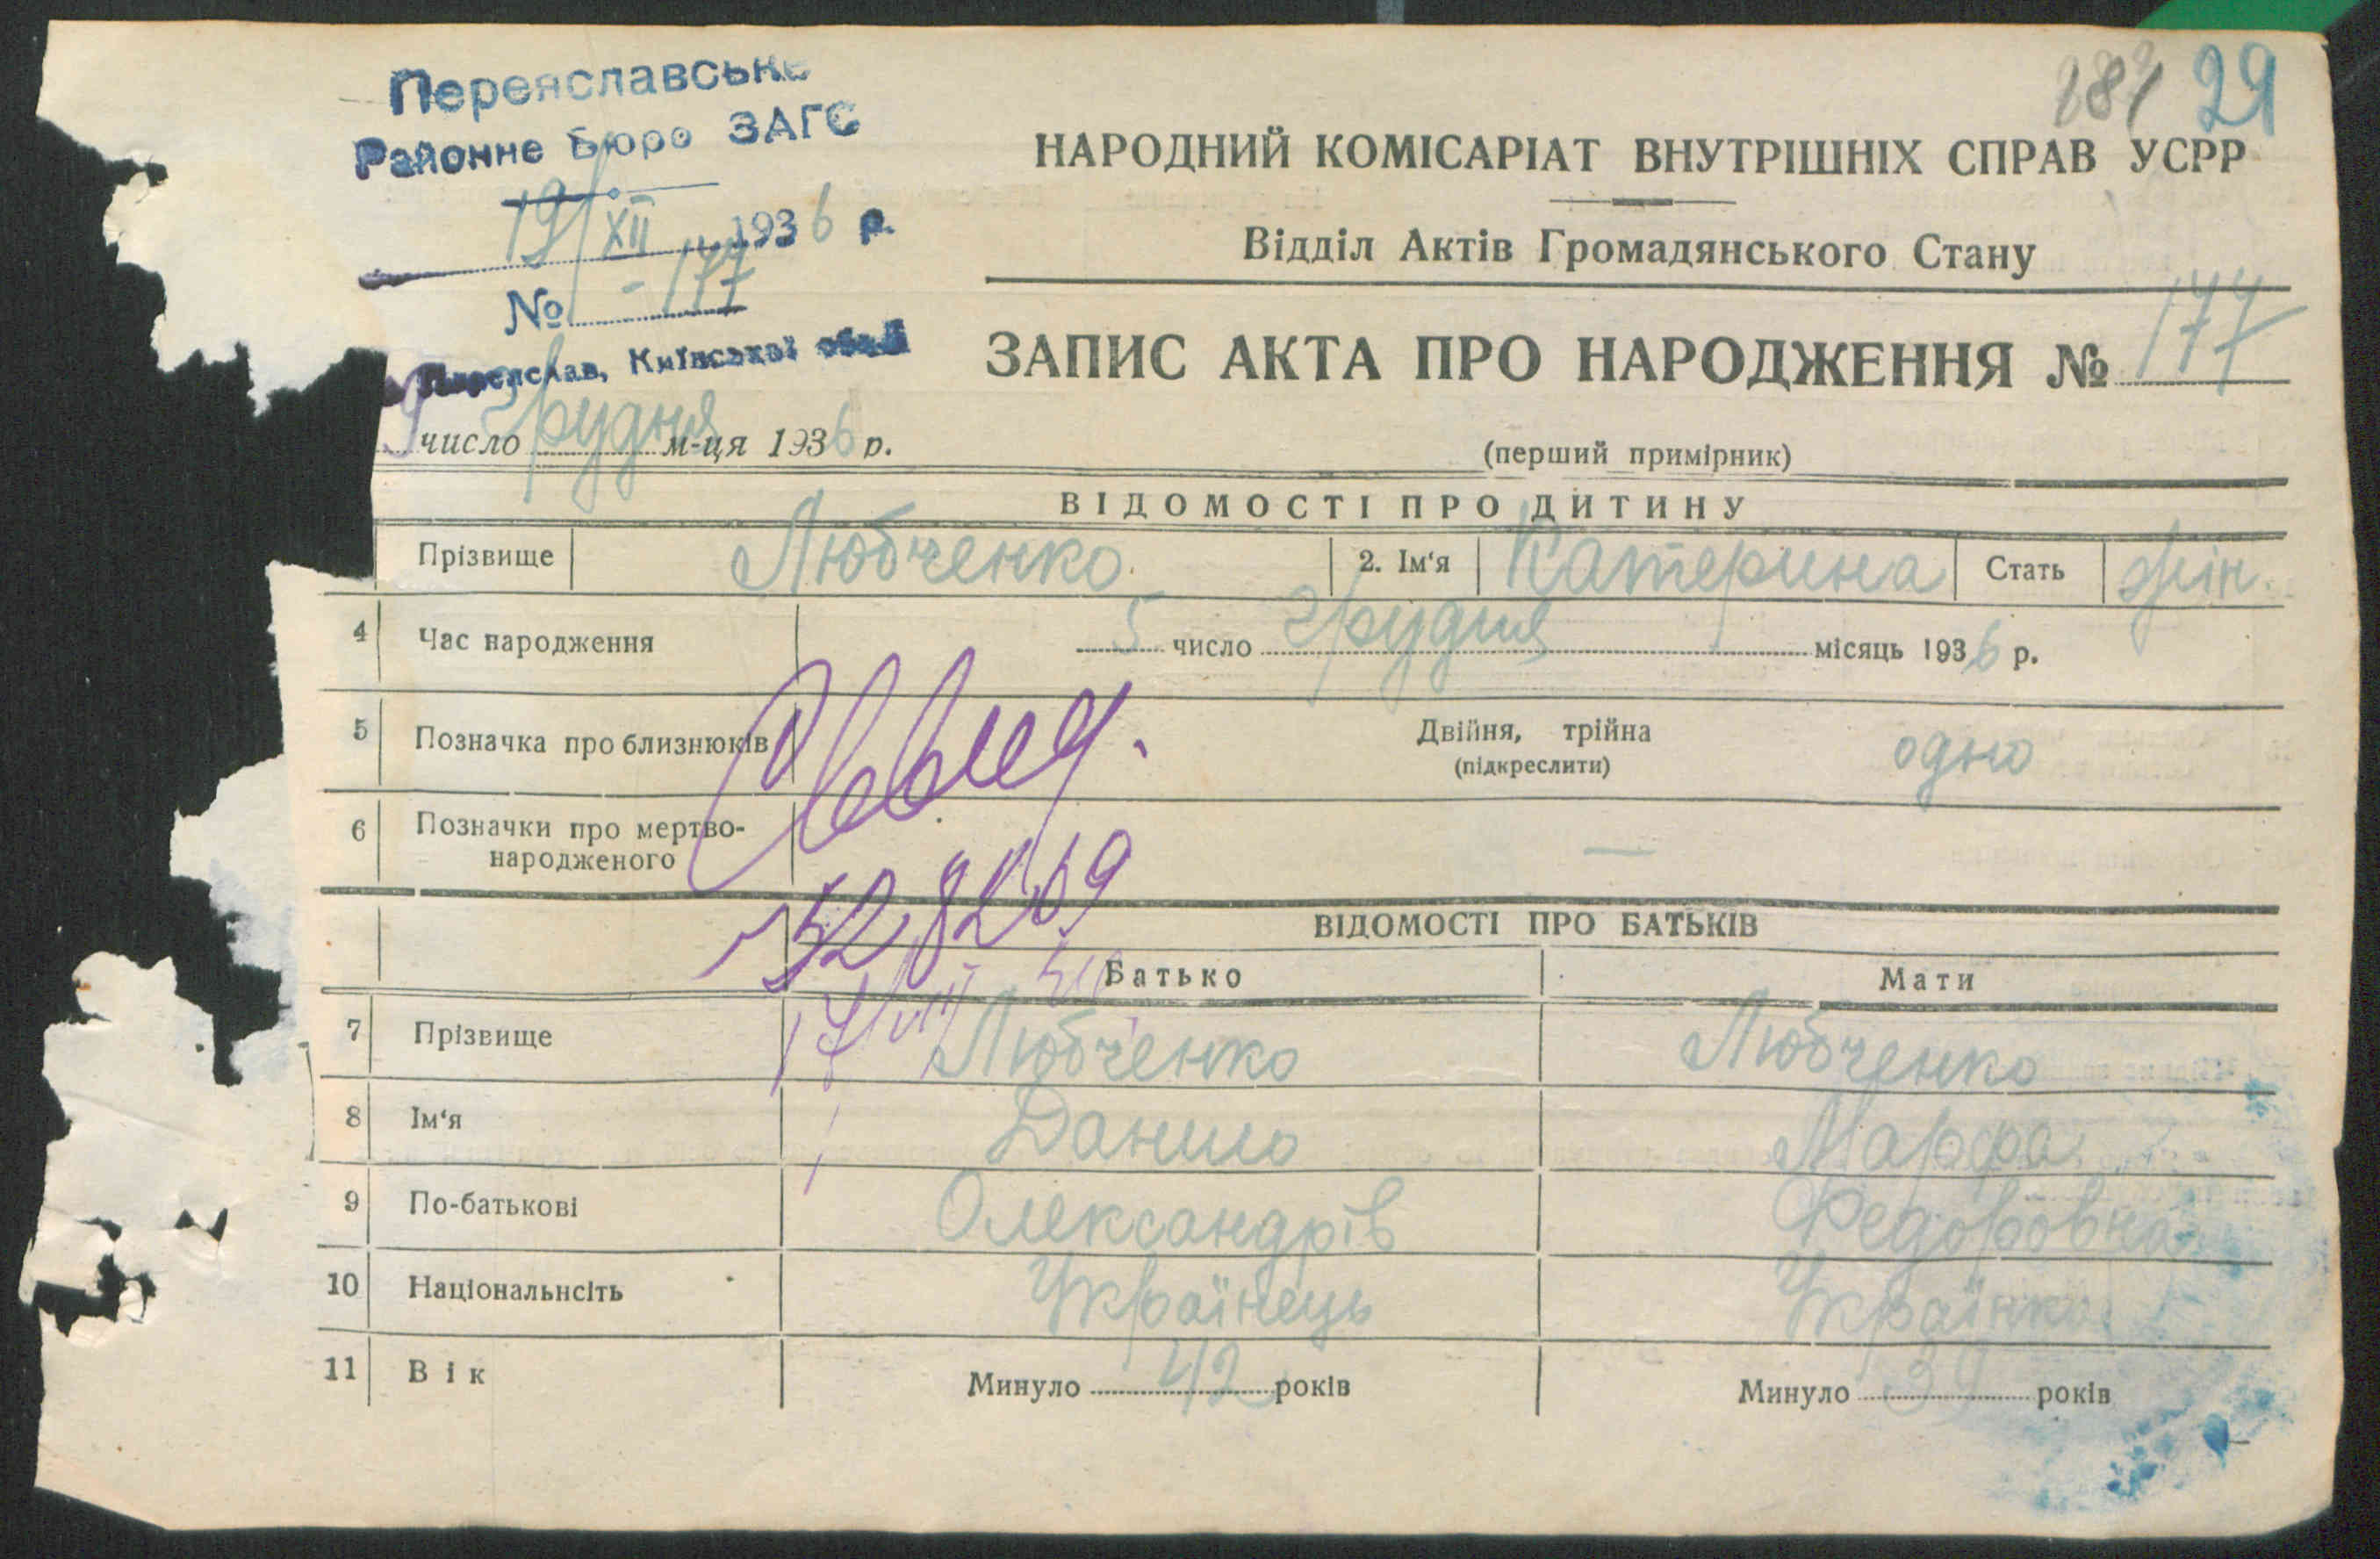 29
Переяславське
Районне Бюро ЗАГС
19/XII 1936 р.
№ - 177
Переяслав, Київської
НАРОДНИЙ КОМІСАРІАТ ВНУТРІШНІХ СПРАВ УСРР
Відділ Актів Громадянського Стану
ЗАПИС АКТА ПРО НАРОДЖЕННЯ № 177
число грудня м-ця 1936 р.
(перший примірник)
ВІДОМОСТІ ПРО ДИТИНУ
Прізвище Любченко 2. Ім'я Катерина Стать жін.
4 Час народження 5 число грудня місяць 1936 р.
5 Позначка про близнюків Двійня, трійна (підкреслити) одно
6 Позначки про мертво-
народженого —
ВІДОМОСТІ ПРО БАТЬКІВ
Батько Мати
7 Прізвище Любченко Любченко
8 Ім'я Данило Марфа
9 По-батькові Олександрів Федоровна
10 Національнсіть Українець Українка
11 Вік Минуло 42 років Минуло 39 років